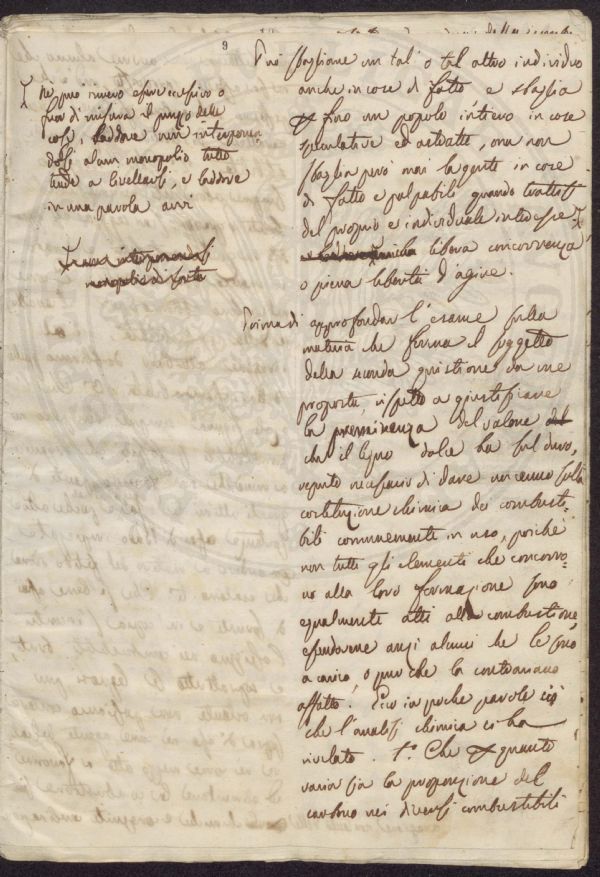 9
Può sbaglione un tal o tal altro individuo
anche in cose di fatto e sbaglia
fino un popolo intiero in cose
speculative ed astratte, ma non
sbaglia però mai la gente in cose
di fatto e palpabili quando trattasi
del proprio e individuale interesse
libera concorrenza
o piena libertà d'agire.
Né può invero essere eccessivo o
fuor di misura il prezzo delle
cose, laddove non interponen-
dosi alcun monopolio tutto
tende a livellarsi, e laddove
in una parola avvi
interponendosi
monopolio di sorta
Prima di approfondar l'esame sulla
materia che forma il soggetto
della seconda quistione da me
proposta, rispetto a giustificare
la preminenza del valore del
che il legno dolce ha sul duro,
reputo necessario di dare un cenno sulla
costituzione chimica dei combusti-
bili comunemente in uso, poiché
non tutti gli elementi che concorro-
no alla loro formazione sono
egualmente atti alla combustione,
essendovene anzi alcuni che le sono
a carico, o pur che la contrariano
affatto. Ecco in poche parole ciò
che l'analisi chimica ci ha
rivelato. 1.° Che quanto
varia sia la proporzione del
carbone nei diversi combustibili